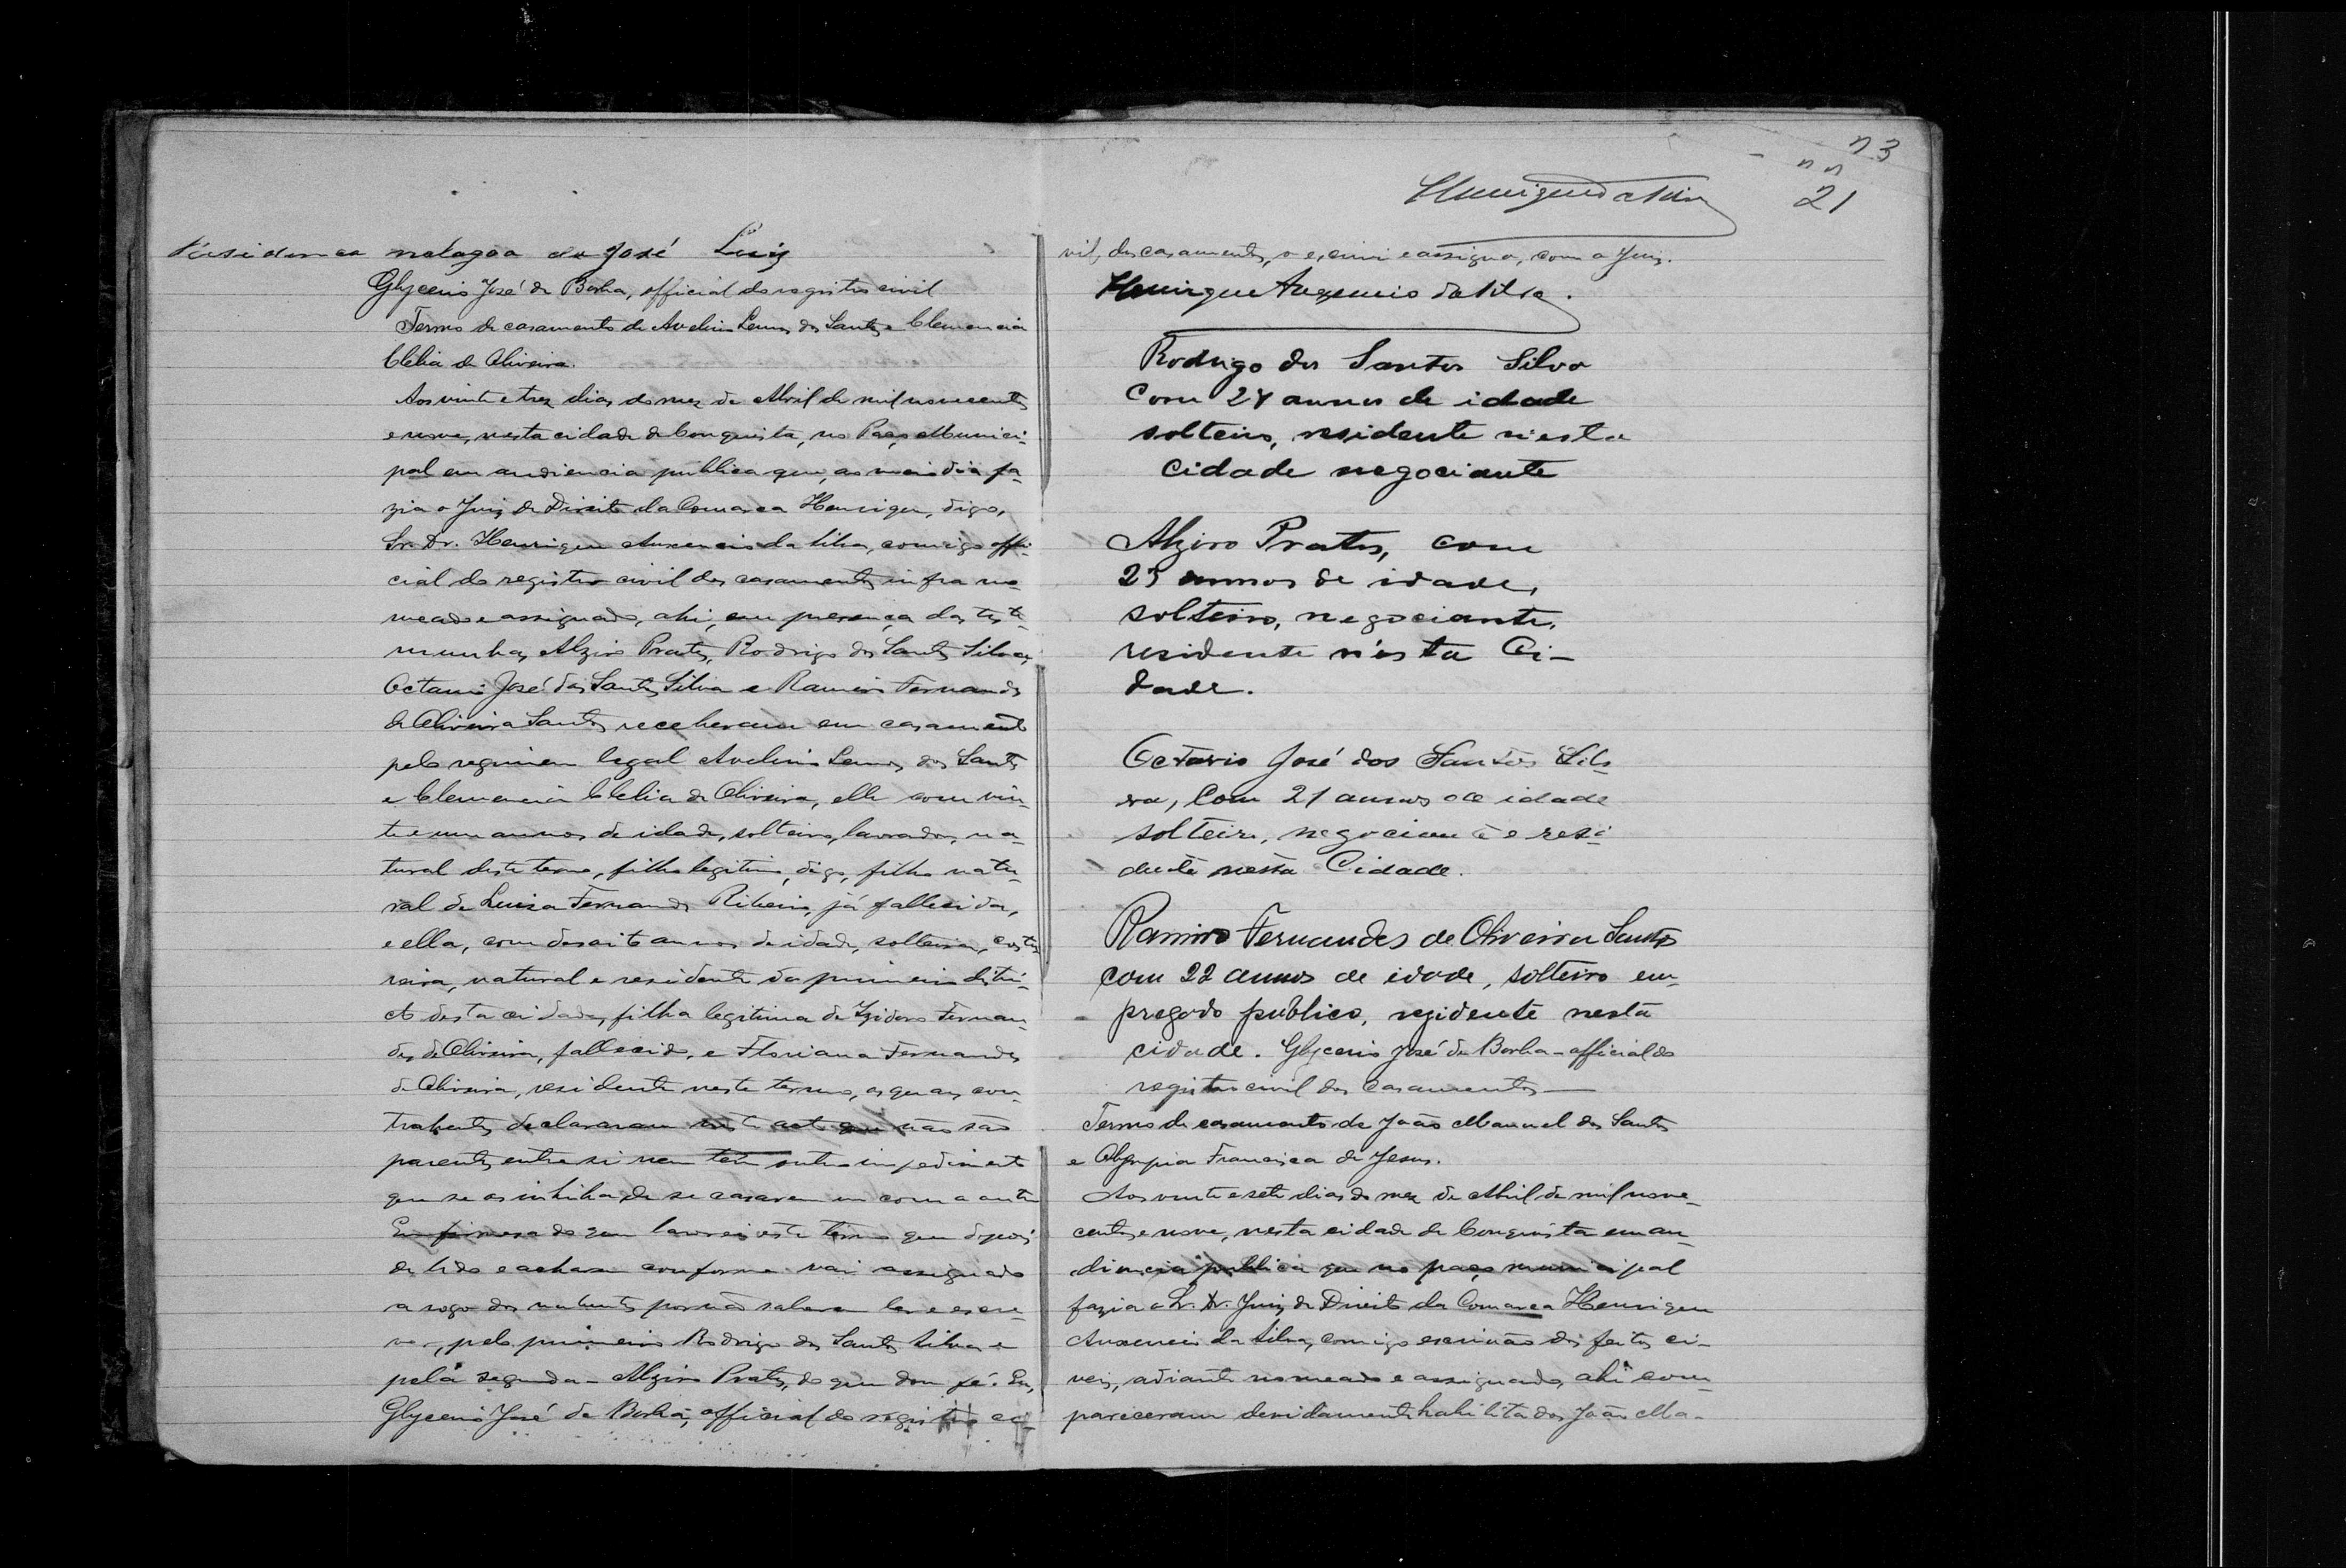 Residencia na lagoa de José Luiz
Glycerio José da Borba, official do registro civil
Termo de casamento de Avelino Lemos dos Santos e Clemencia
Clelia de Oliveira.
Aos vinte e trez dias do mez de Abril de mil novecentos
e nove, nesta cidade de Conquista, no Paço Munici-
pal em audiencia publica que, ao meio dia fa-
zia o Juiz de Direito da Comarca Henrique, digo,
Sr. Dr. Henrique Auxencio da Silva, comigo offi-
cial do registro civil dos casamentos infra no-
meado e assignado, ahi, em presença das teste-
munhas Alziro Prates, Rodrigo dos Santos Silva,
Octavio José dos Santos Silva e Ramiro Fernandes
de Oliveira Santos receberam em casamento
pelo regimen legal Avelino Lemos dos Santos
e Clemencia Clelia de Oliveira, elle com vin-
te e um annos de idade, solteiro, lavrador, na-
tural deste termo, filho legitimo, digo, filho natu-
ral de Luiza Fernandes Ribeiro, já fallecida,
e ella, com desoito annos de idade, solteira, costu-
reira, natural e residente do primeiro distri-
cto desta cidade, filha legitima de Izidoro Fernan-
des de Oliveira, fallecido, e Floriana Fernandes
de Oliveira, residente neste termo, os quaes con-
trahentes declararam neste acto que não são
parentes entre si nem tem outro impedimento
que se os inhiba de se casarem um com a outra
Em firmesa do que lavrei este termo que depois
de lido e acharem conforme vai assignado
a rogo dos nubentes por não saberem ler e escre-
ver, pelo primeiro Rodrigo dos Santos Silva e
pela segunda - Alziro Prates, do que dou fé. Eu,
Glycerio José da Borba, official do registro ci-
n 3
n n
21
Henrique da Silva
vil, dos casamentos, o escrivi e assigno, com o Juiz.
Henrique Auxencio da Silva.
Rodrigo dos Santos Silva
Com 24 annos de idade
solteiro, residente n'esta
cidade negociante
Alziro Prates, com
23 annos de idade,
solteiro, negociante,
residente n'esta Ci-
dade.
Octavio José dos Santos Sil-
va, Com 21 annos de idade
solteiro, negociante e resi-
dente nesta Cidade.
Ramiro Fernandes de Oliveira Santos
com 22 annos de idade, solteiro em-
pregado publico, rezidente nesta
cidade. Glycerio José da Borba - official do
registro civil dos casamentos
Termo de casamento de João Manuel dos Santos
e Olympia Francisca de Jesus.
Aos vinte e sete dias do mez de Abril de mil nove-
centos e nove, nesta cidade de Conquista em au-
diencia publica que no paço municipal
fazia o Sr. Dr. Juiz de Direito da Comarca Henrique
Auxencio da Silva, comigo escrivão dos feitos ci-
veis, adiante nomeado e assignado, ahi com-
pareceram devidamente habilitados João Ma-